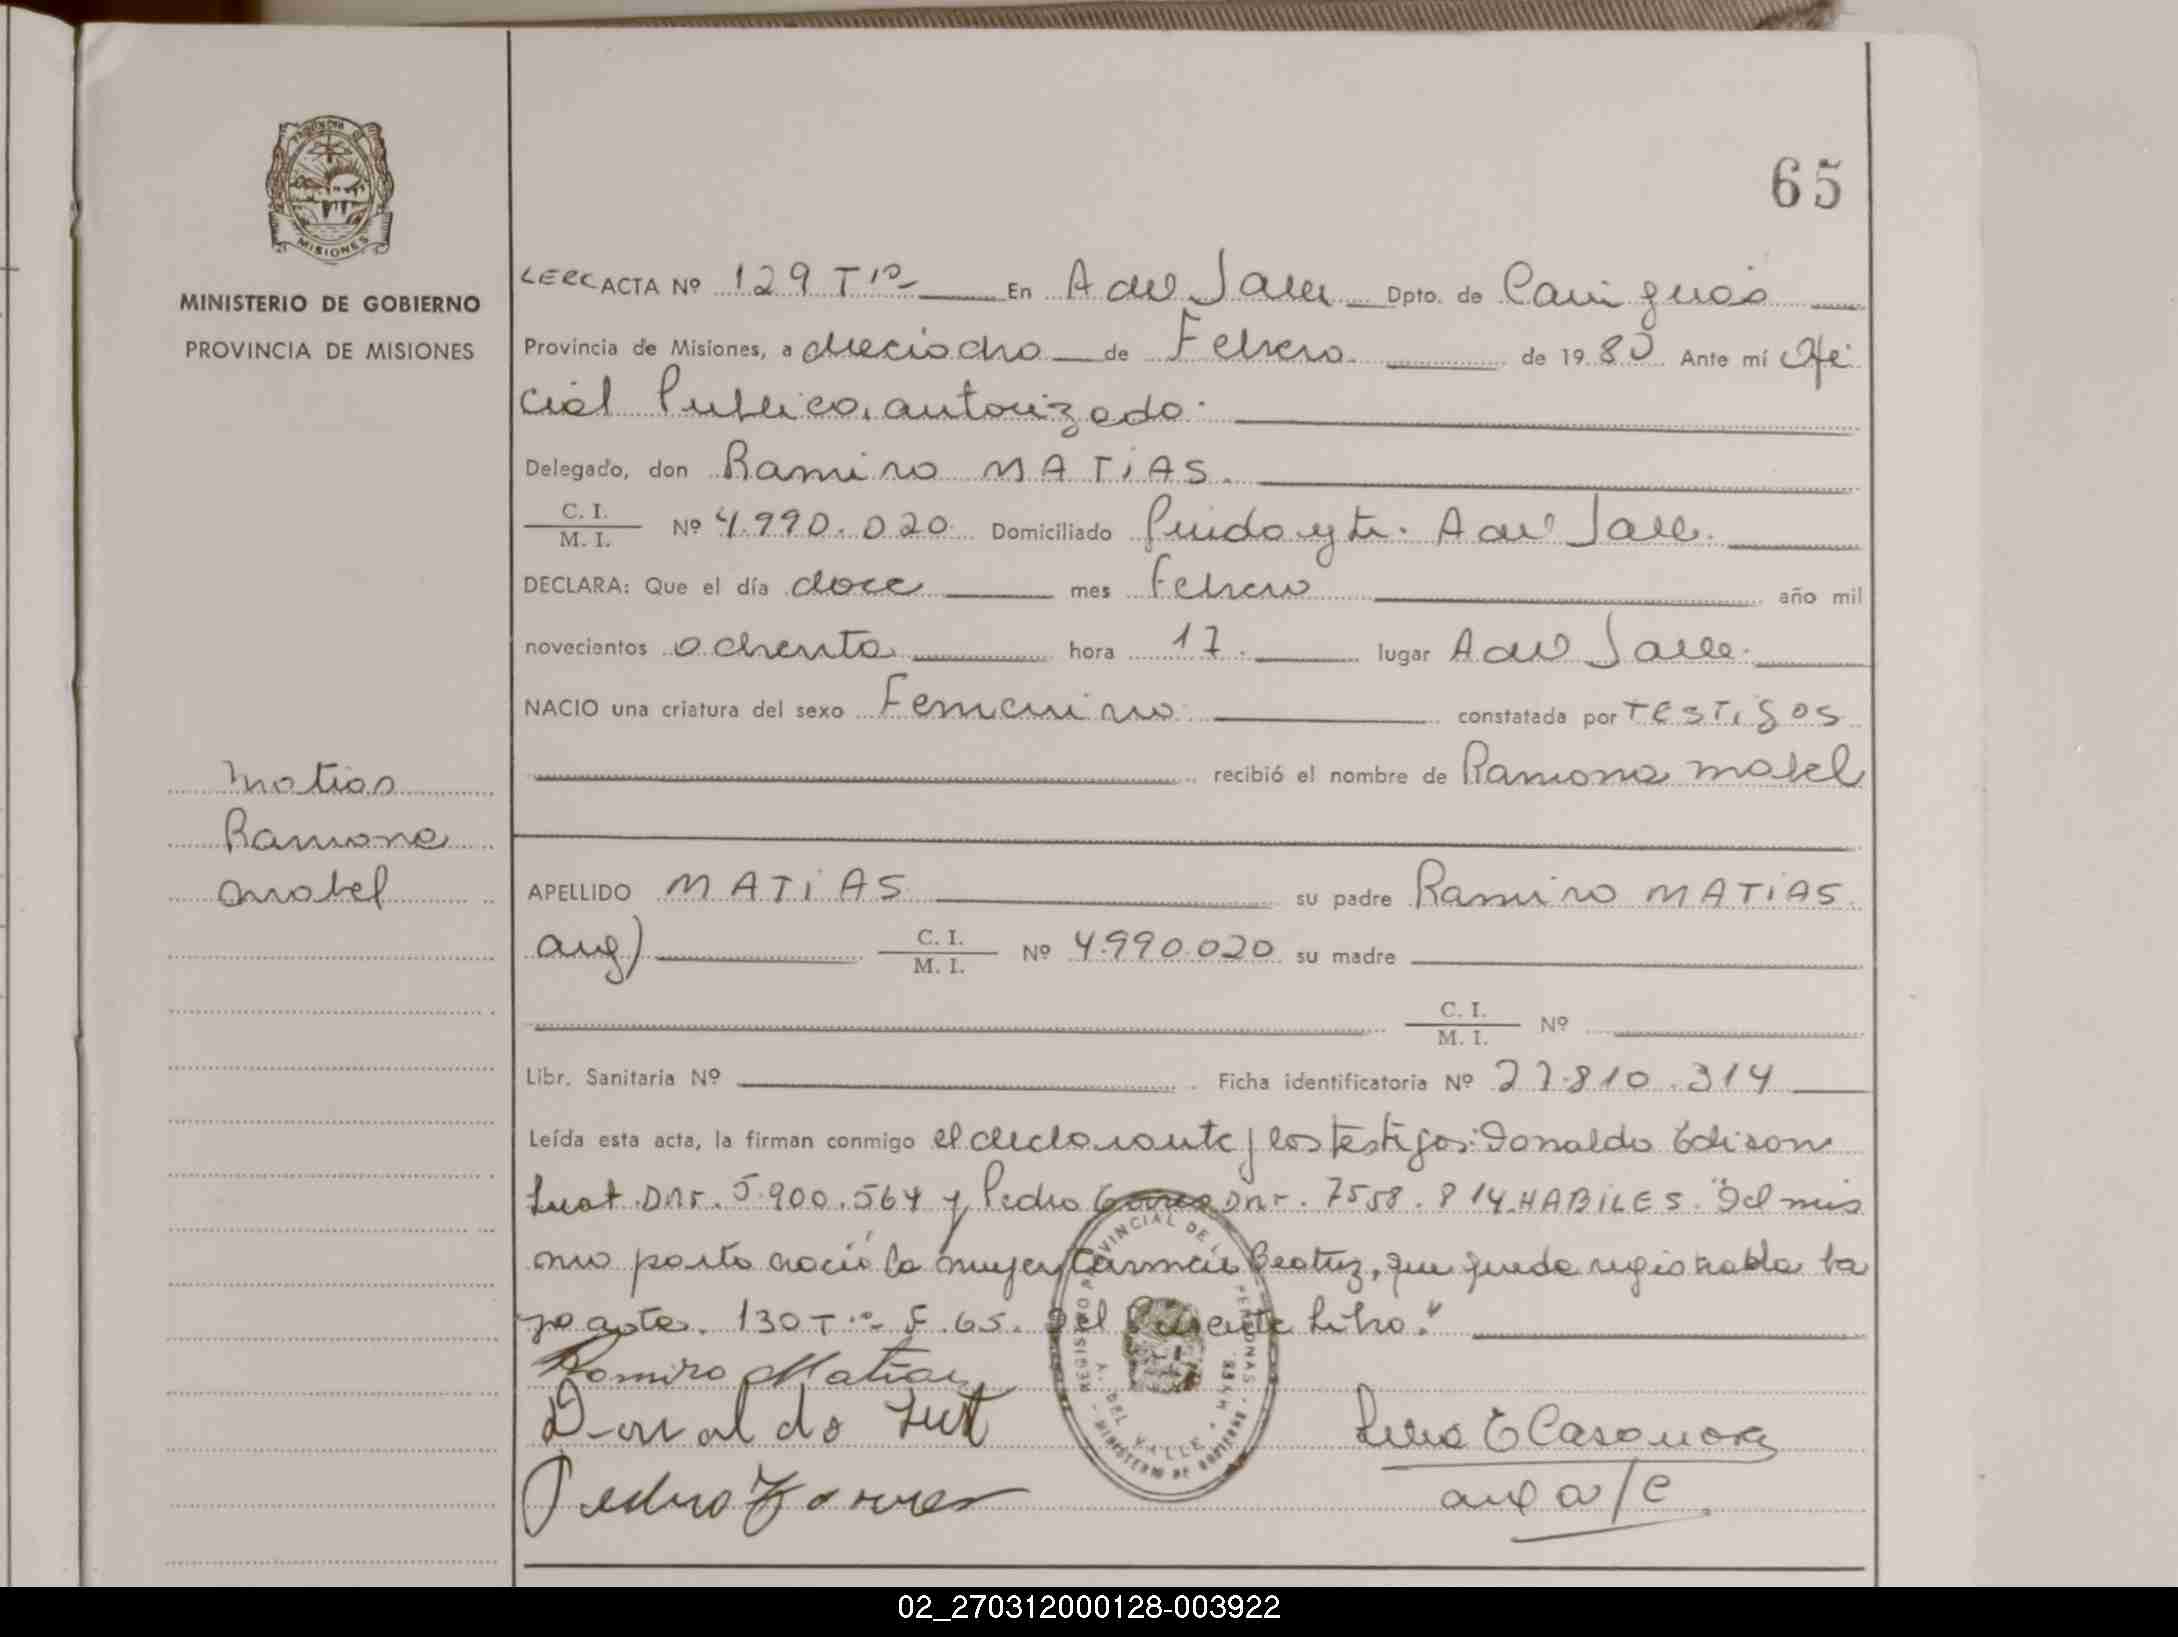 65
PROVINCIA DE
MISIONES
MINISTERIO DE GOBIERNO
PROVINCIA DE MISIONES
ACTA Nº 129 Tº En A del Valle Dpto. de Cainguás
Provincia de Misiones, a dieciocho de Febrero de 1980 Ante mí Ofi
cial Publico, autorizado.
Delegado, don Ramiro MATIAS.
C. I.
M. I. Nº 4.990.020 Domiciliado A del Valle.
DECLARA: Que el día doce mes Febrero año mil
novecientos ochenta hora 17. lugar A del Valle.
NACIO una criatura del sexo Femenino constatada por TESTIGOS
recibió el nombre de Ramona Mabel
Matias
Ramona
Mabel
APELLIDO MATIAS su padre Ramiro MATIAS
arg) C. I.
M. I. Nº 4.990.020 su madre
C. I.
M. I. Nº
Libr. Sanitaria Nº Ficha identificatoria Nº 27.810.314
Leída esta acta, la firman conmigo el declarante y los testigos: Donaldo Edison
Lust DNI. 5.900.564 y Pedro DNI. 7558.814 HABILES. "Del mis
mo parto nació la mujer Carmen Beatriz, que queda registrada ba
jo acta. 130 Tº F. 65. del Presente Libro."
Ramiro Matias
Donaldo Lust
Pedro
E Casanova
a/c
REGISTRO PROVINCIAL DE LAS PERSONAS
MINISTERIO DE GOBIERNO
A. DEL VALLE
02_270312000128-003922